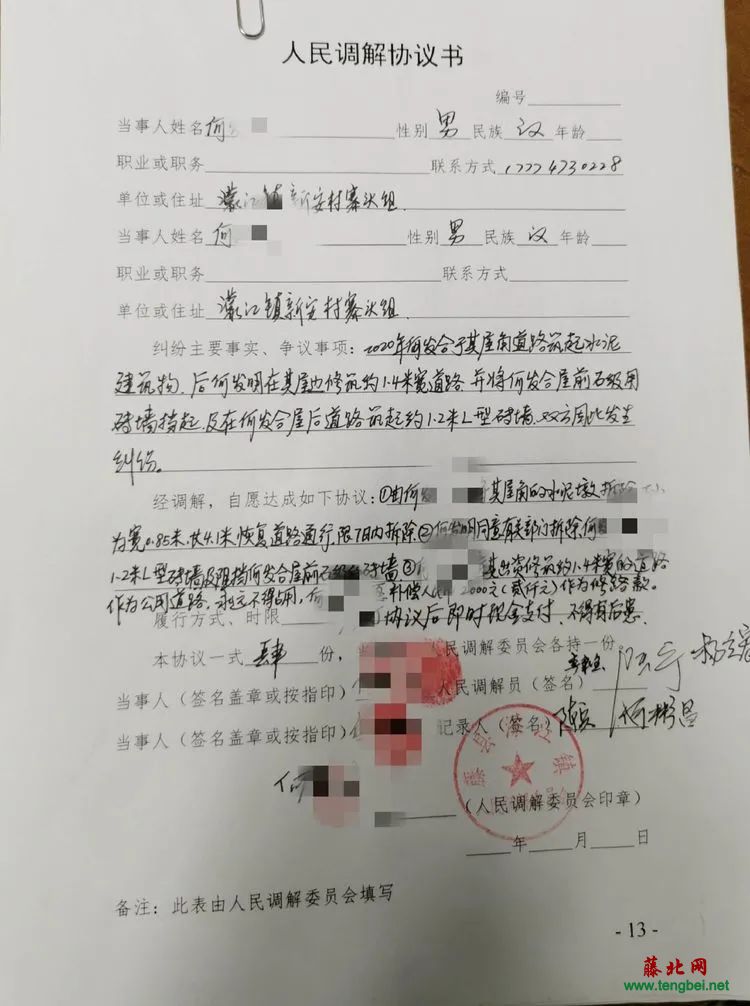 人民调解协议书
编号
当事人姓名何 性别男民族汉年龄
职业或职务 联系方式17774730228
单位或住址濛江 新安村寨头组.
当事人姓名何 性别男民族汉年龄
职业或职务 联系方式
单位或住址濛江镇新安村寨头组.
纠纷主要事实、争议事项:2020年何发合于其屋角道路筑起水泥
建筑物,后何发明在其屋边修筑约1.4米宽道路,并将何发合屋前石级用
砖墙挡起,及在何发合屋后道路筑起约1.2米L型砖墙,双方因此发生
纠纷。
经调解,自愿达成如下协议:①由何 其屋角的水泥墩拆除
为宽0.85米,长4.1米,恢复道路通行,限7日内拆除②何发明同意有关部门拆除何
1.2米L型砖墙及阻挡何发合屋前石 砖墙③ 其出资修筑约1.4米宽的道路
作为公用道路,永远不得占用, 补偿人 2000元(贰仟元)作为修路款。
履行方式、时限 协议后即时现金支付,不得有后患.
本协议一式肆份,当 人民调解委员会各持一份
当事人(签名盖章或按指印) 人民调解员(签名)
当事人(签名盖章或按指印) 记录人(签名)
何
藤县 江镇
(人民调解委员会印章)
年 月 日
备注:此表由人民调解委员会填写
- 13 -
藤北网
www.tengbei.net